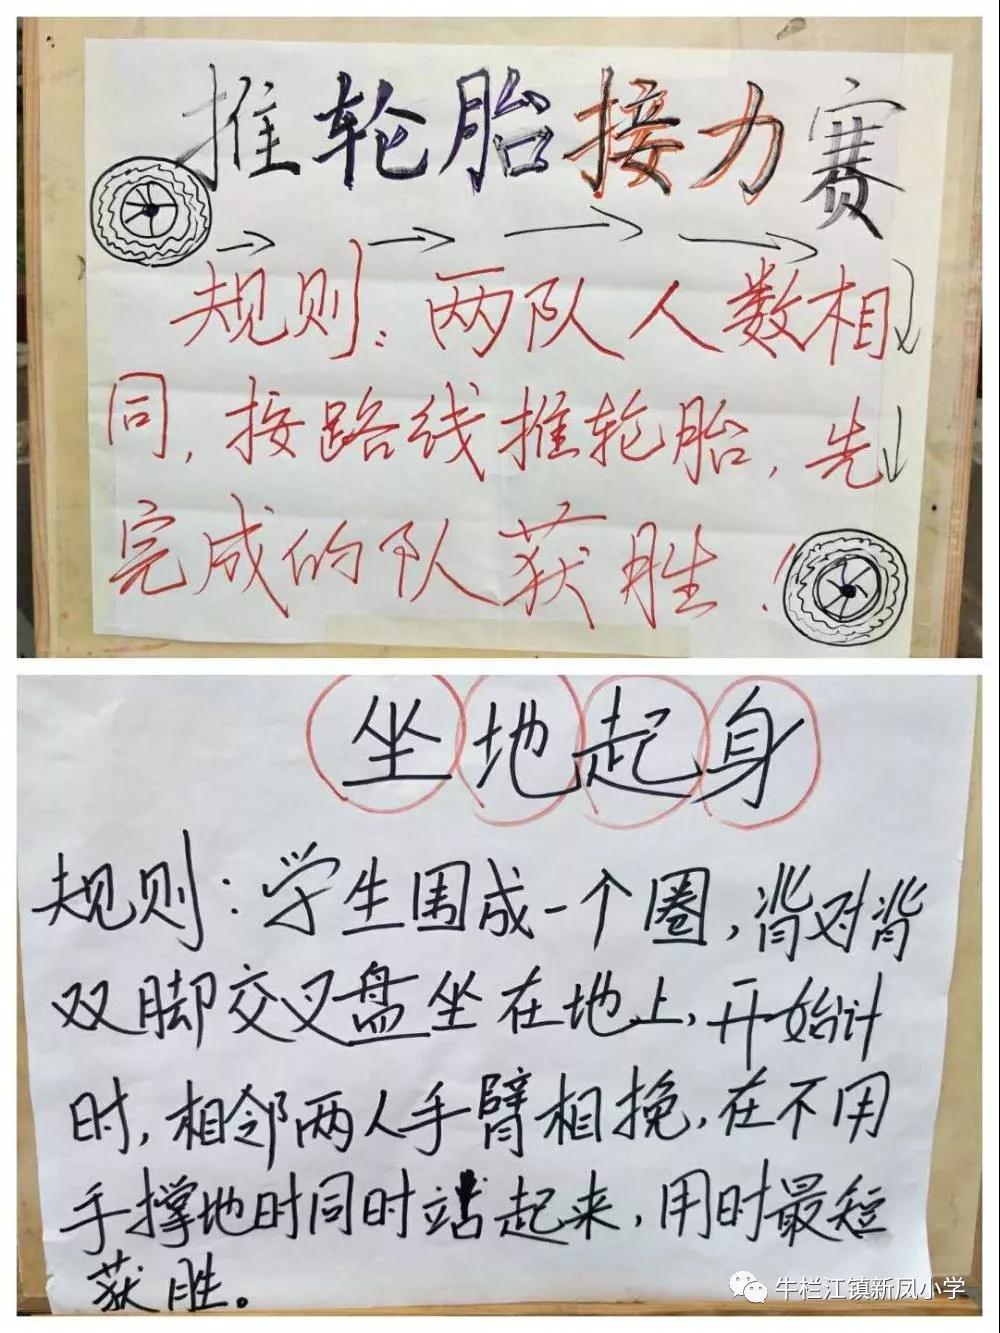 推轮胎接力赛
规则:两队人数相
同,按路线推轮胎,先
完成的队获胜!
坐地起身
规则:学生围成一个圈,背对背
双脚交叉盘坐在地上,开始计
时,相邻两人手臂相挽,在不用
手撑地时同时站起来,用时最短
获胜。
牛栏江镇新凤小学